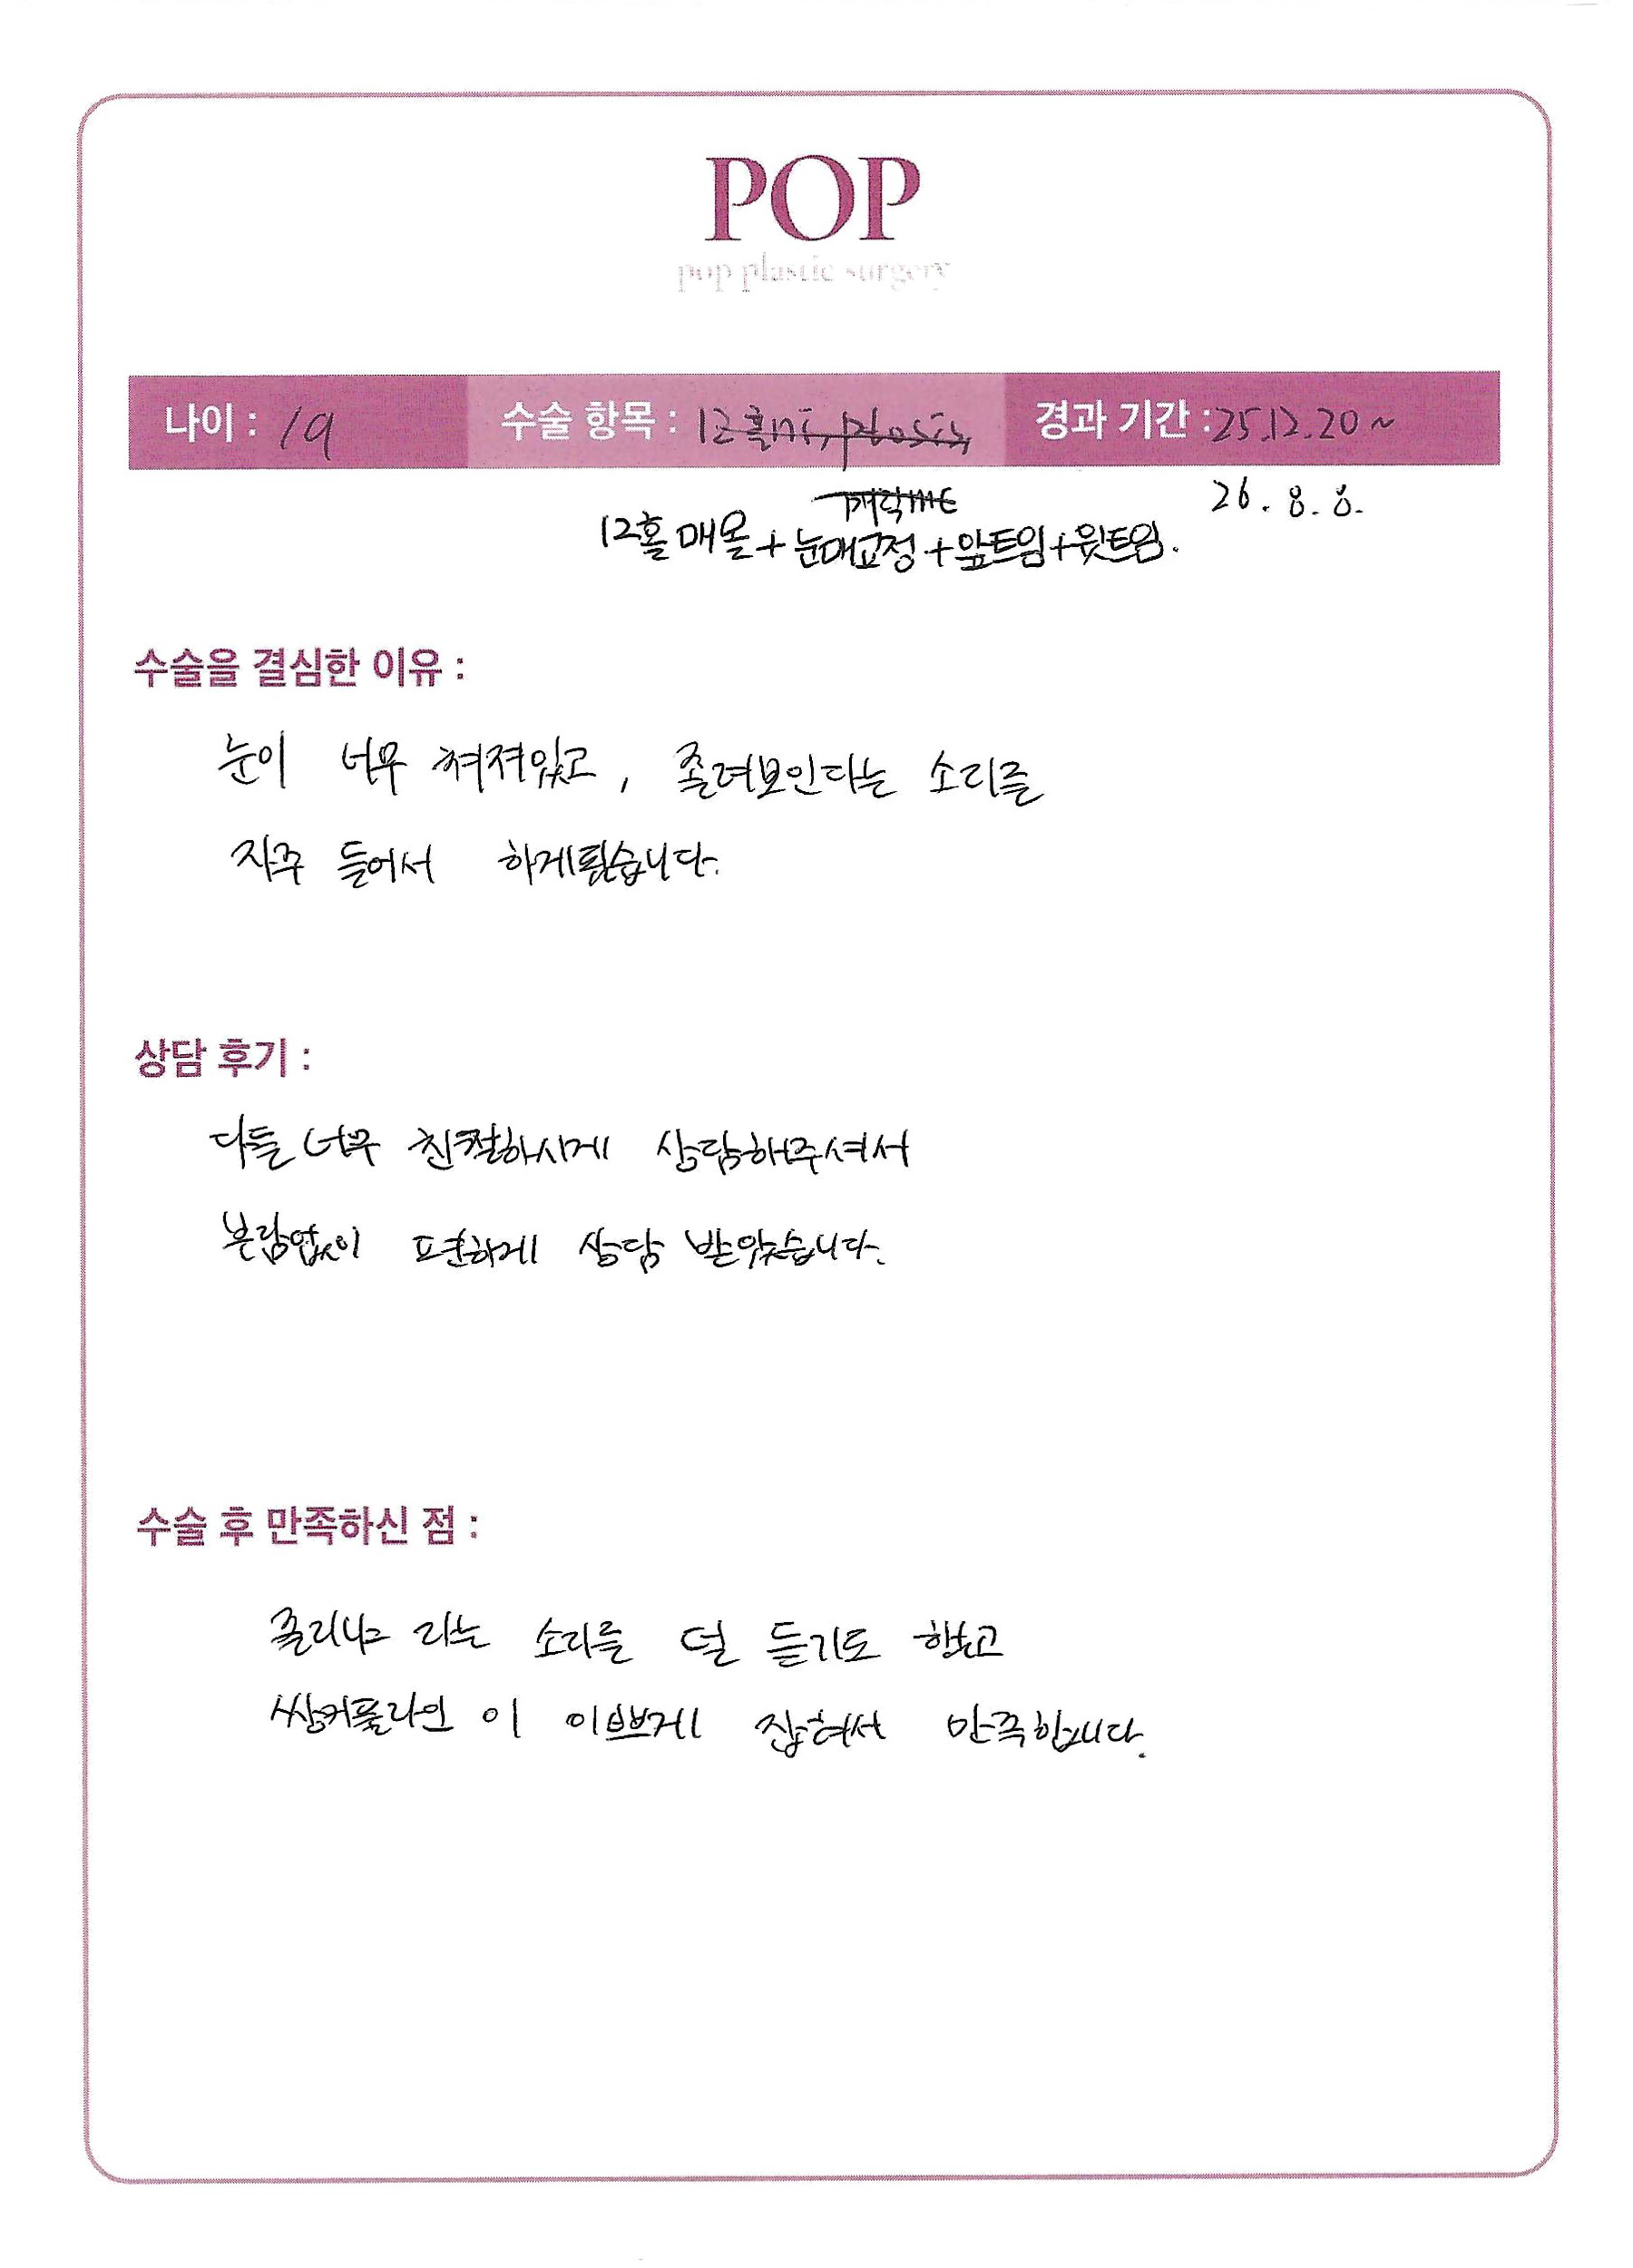 POP
pop plastic surgery
나이 : 19 수술 항목 : 12홀nt, ptosis 경과 기간 : 25.12.20~
26. 8. 8.
12홀 매몰+눈매교정+앞트임+윗트임.
수술을 결심한 이유 :
눈이 너무 쳐져있고, 졸려보인다는 소리를
자주 들어서 하게됐습니다.
상담 후기 :
다들 너무 친절하시게 상담해주셔서
본람없이 편하게 상담 받았습니다.
수술 후 만족하신 점 :
졸리냐 라는 소리를 덜 듣기도 하고
쌍커풀라인 이 이쁘게 잡혀서 만족합니다.